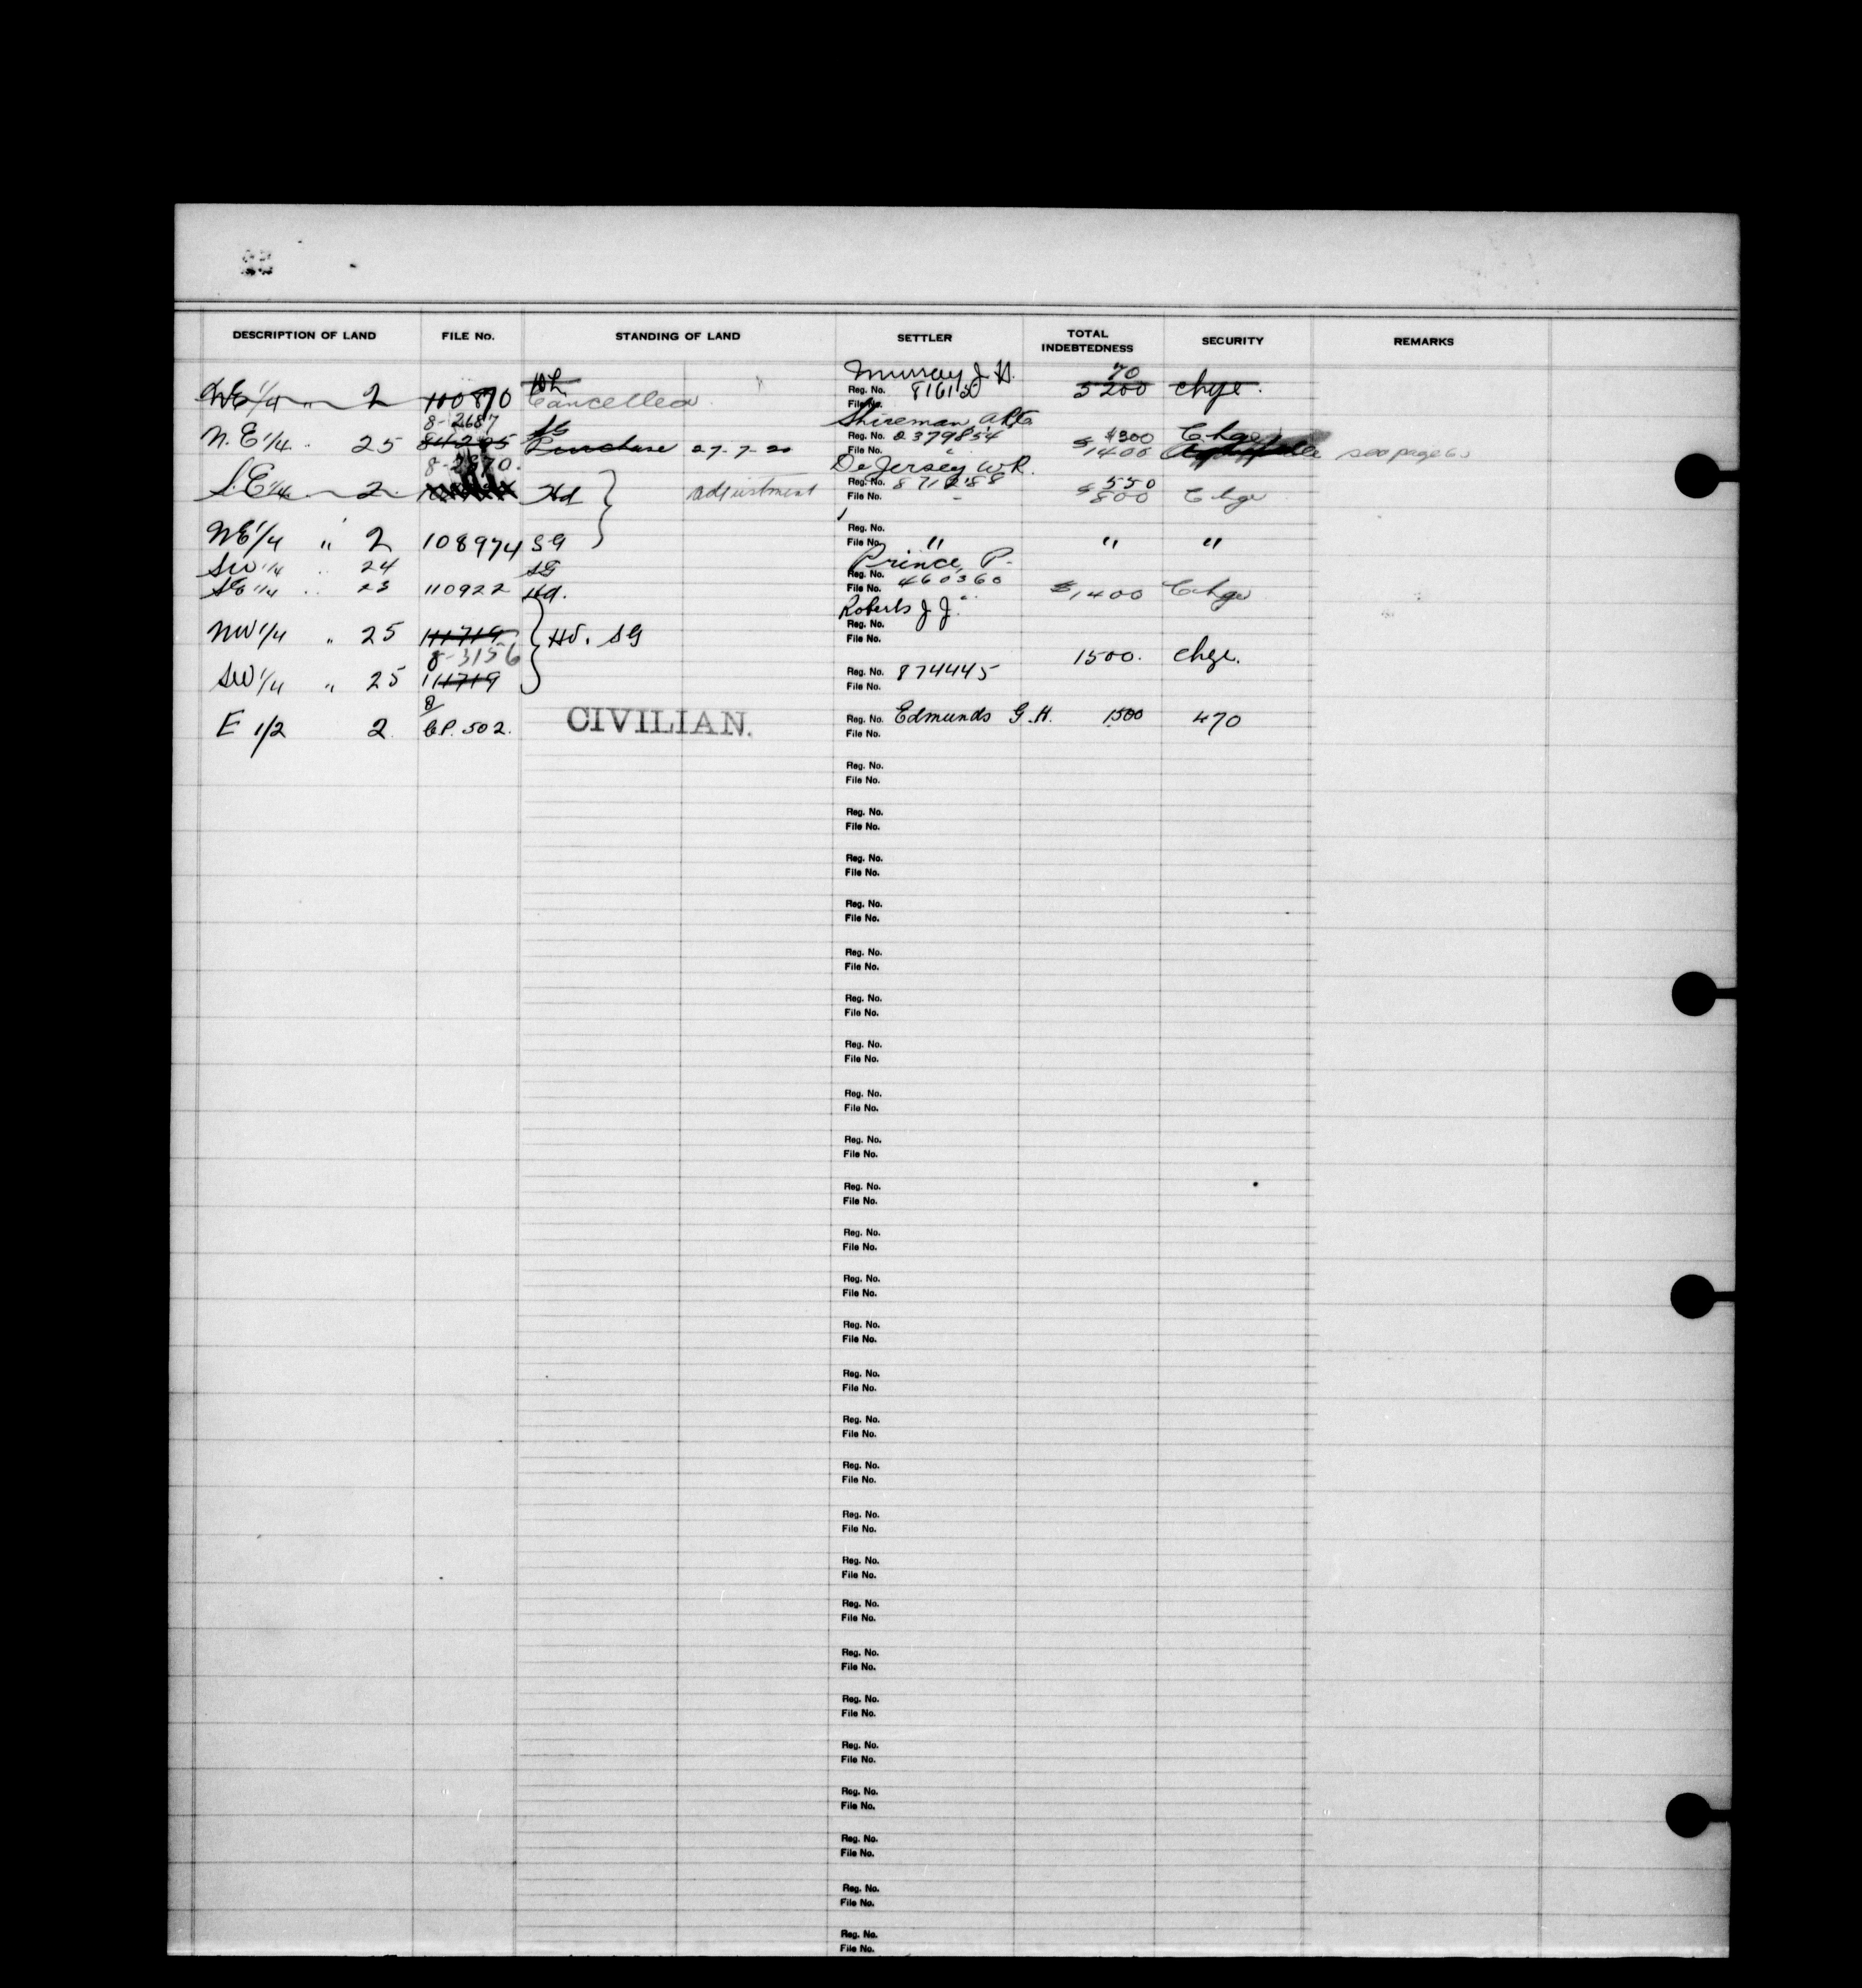 DESCRIPTION OF LAND FILE No. STANDING OF LAND SETTLER TOTAL INDEBTEDNESS SECURITY REMARKS
Murray J H. 70
NE 1/4 " 2 100870 Cancelled Reg. No. 816150 5200 chge.
File No.
8-2687 SG Shireman
N.E 1/4 " 25 Purchase 27-7-20 Reg. No. 2379854 $300 Chge
File No. $1400 see page 60
8-2870. De Jersey W R.
S.E 1/4 " 2 Hd adjustment Reg. No. 871288 $550
File No. $800 Chge
Reg. No.
NE 1/4 " 2 108974 SG File No. " " "
SW 1/4 " 24 SG Prince, P.
Reg. No. 460360
SE 1/4 " 23 110922 Hd. File No. $1400 Chge
Roberts J J.
Reg. No.
NW 1/4 " 25 111719 Hd. SG File No.
8-3156 1500. chge.
SW 1/4 " 25 111719 Reg. No. 874445
File No.
8/
E 1/2 2 CP. 502. CIVILIAN. Reg. No. Edmunds G.H. 1500 470
File No.
Reg. No.
File No.
Reg. No.
File No.
Reg. No.
File No.
Reg. No.
File No.
Reg. No.
File No.
Reg. No.
File No.
Reg. No.
File No.
Reg. No.
File No.
Reg. No.
File No.
Reg. No.
File No.
Reg. No.
File No.
Reg. No.
File No.
Reg. No.
File No.
Reg. No.
File No.
Reg. No.
File No.
Reg. No.
File No.
Reg. No.
File No.
Reg. No.
File No.
Reg. No.
File No.
Reg. No.
File No.
Reg. No.
File No.
Reg. No.
File No.
Reg. No.
File No.
Reg. No.
File No.
Reg. No.
File No.
Reg. No.
File No.